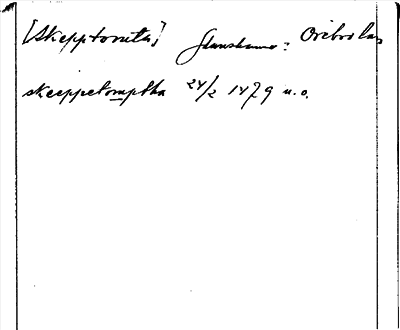 [Skepptomta] Skarnhama: Örebro lan
skeeppetomptha 24/2 1479 u.o.